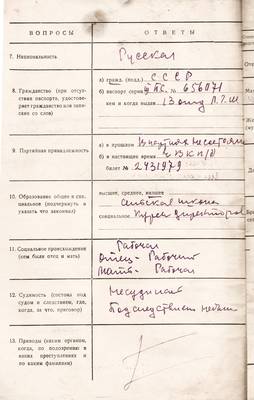 ВОПРОСЫ
ОТВЕТЫ
7. Национальность
Русская
8. Гражданство (при отсут-
ствии паспорта, удостове-
ряет гражданство или запи-
сано со слов)
а) гражд. (подд.) СССР
б) паспорт серия № 656071
кем и когда выдан 13
9. Партийная принадлежность
а) в прошлом
б) в настоящее время ВКП/б
билет № 2431979
10. Образование общее и спе-
циальное (подчеркнуть и
указать что закончил)
высшее, среднее, низшее
сельская школа
специальное Курсы директоров
11. Социальное происхождение
(кем были отец и мать)
Рабочая
Отец - Рабочий
Мать - Рабочая
12. Судимость (состоял под
судом и следствием, где,
когда, за что, приговор)
Несудилась
Под следствием не была
13. Приводы (каким органом,
когда, по подозрению в
каких преступлениях и
по каким фамилиям)